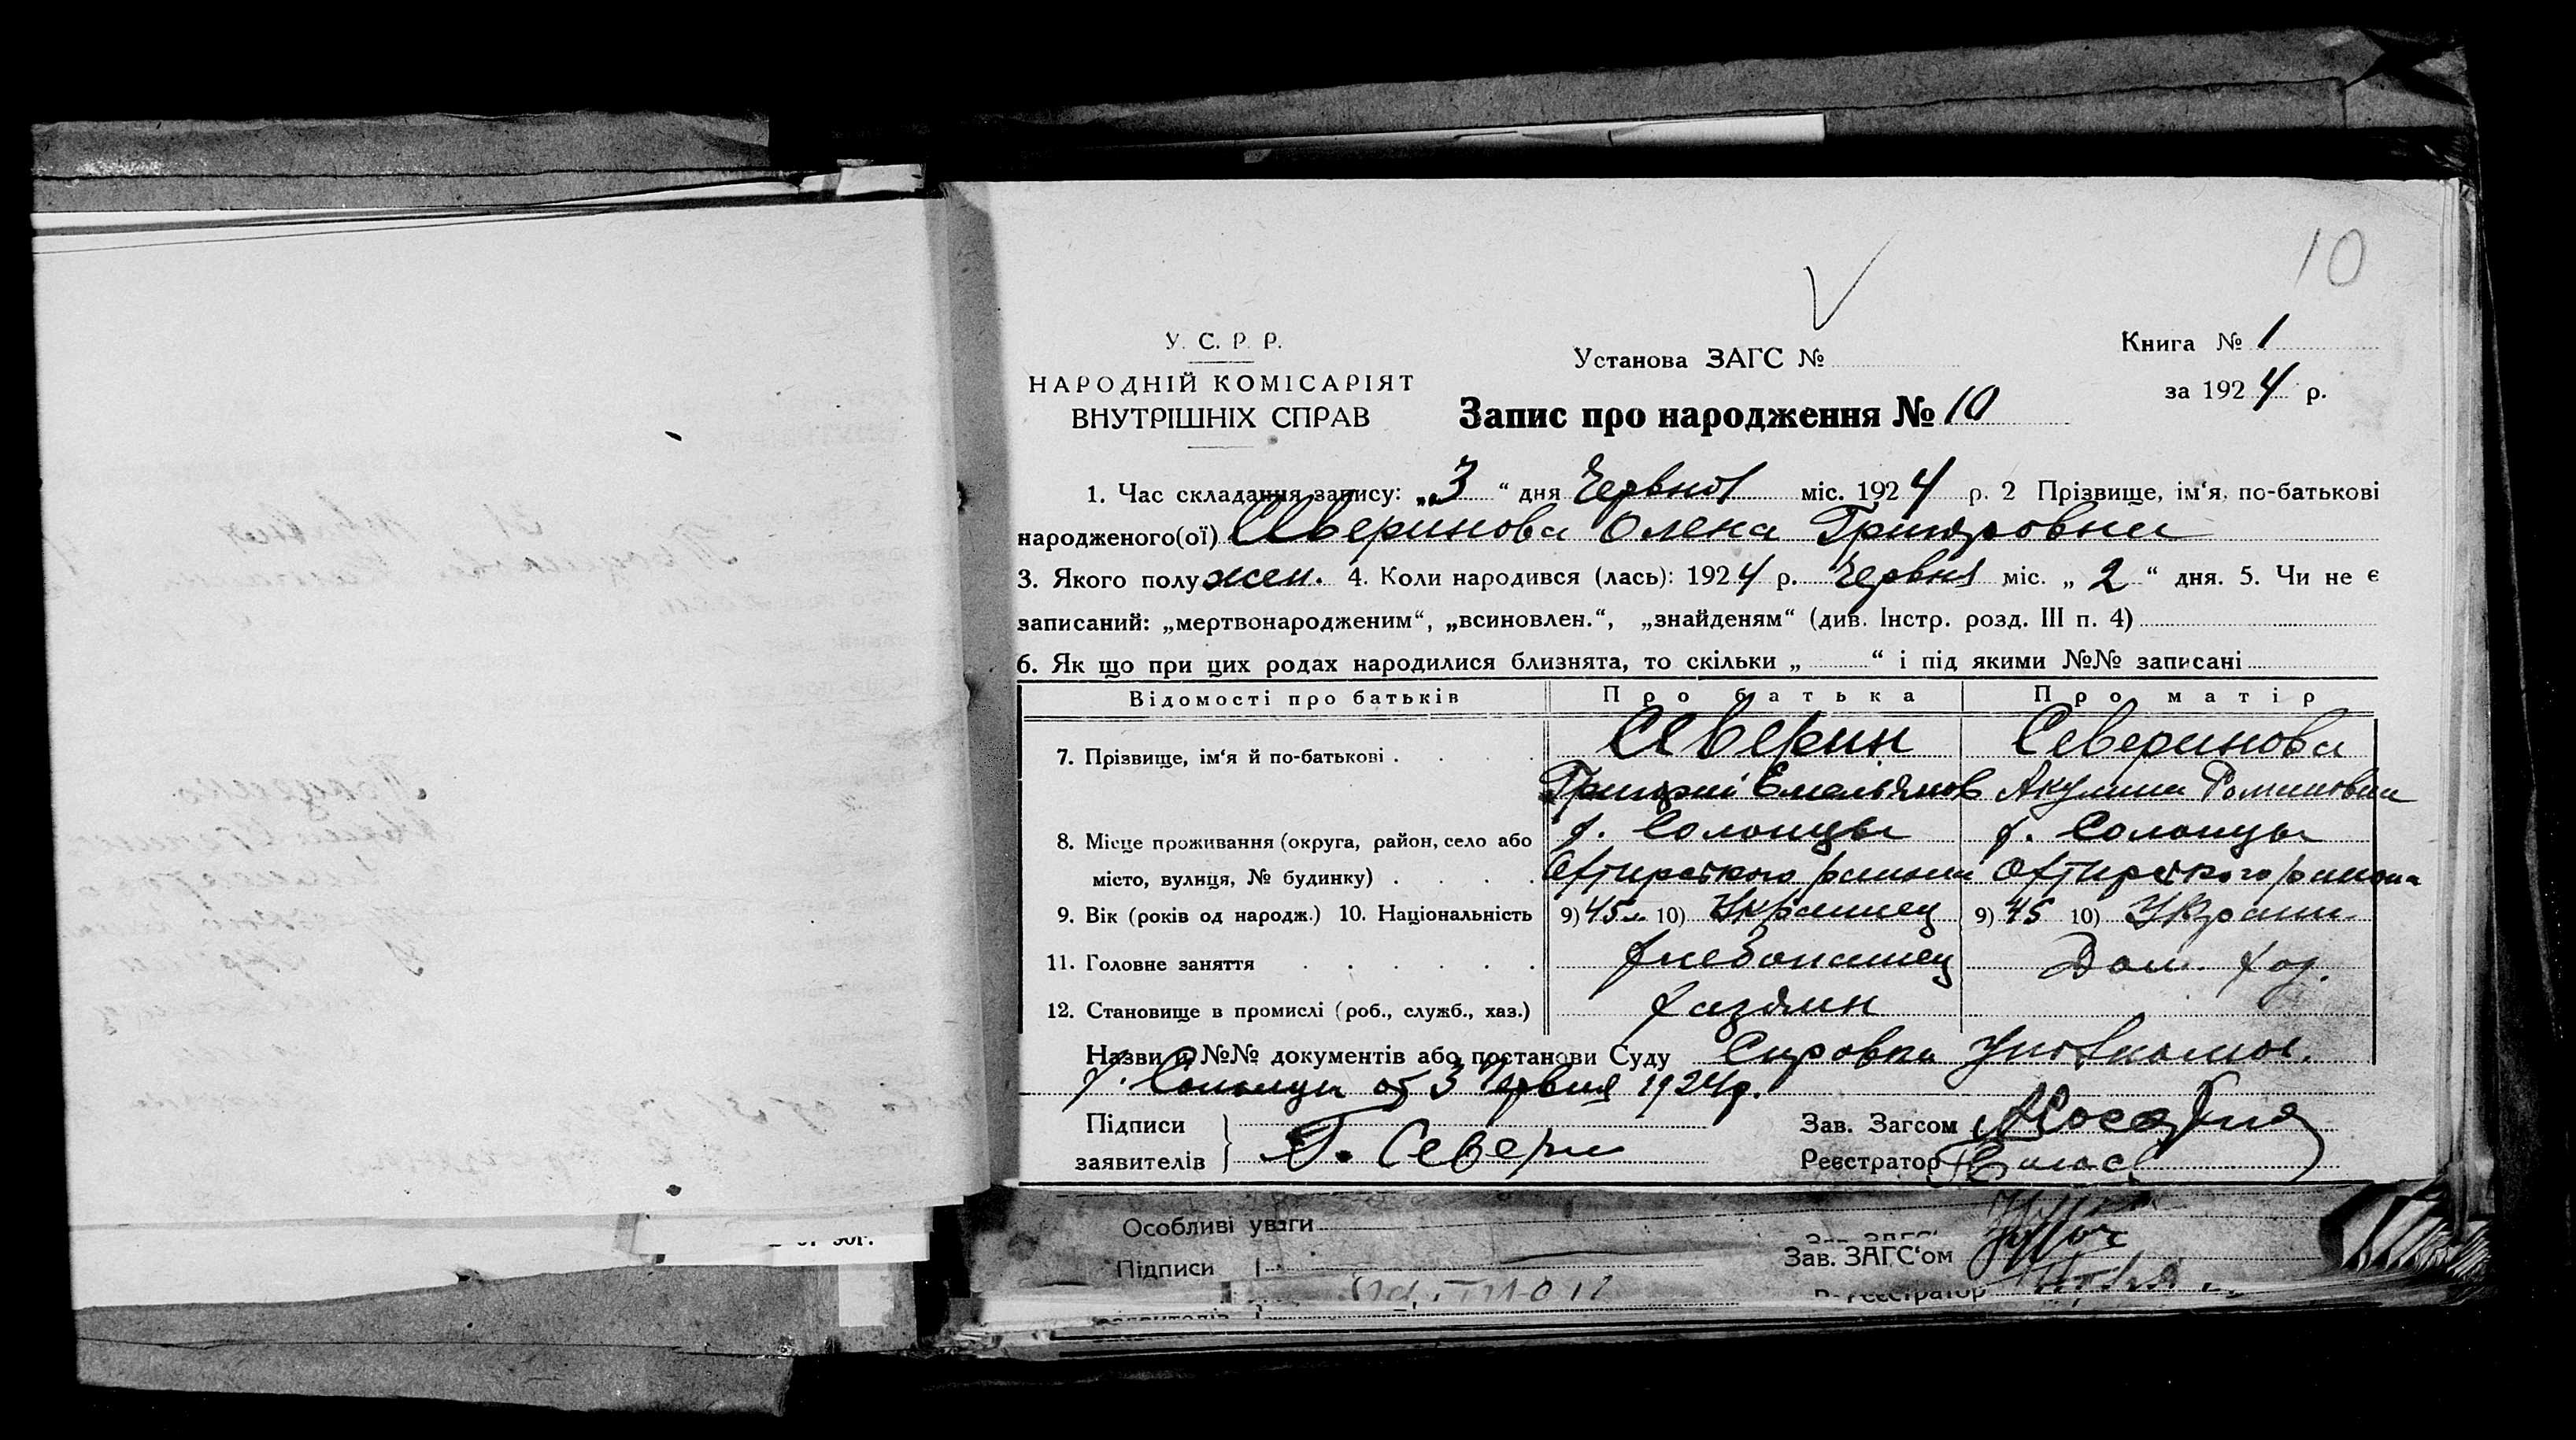 10
У. С. Р. Р.
НАРОДНІЙ КОМІСАРІЯТ
ВНУТРІШНІХ СПРАВ
Установа ЗАГС №
Книга № 1
за 1924 р.
Запис про народження № 10
1. Час складання запису: „3“ дня Червня міс. 1924 р. 2 Прізвище, ім‘я, по-батькові
народженого(ої) Северинова Олена Григоровна
3. Якого полу жен. 4. Коли народився (лась): 1924 р. Червня міс. „2“ дня. 5. Чи не є
записаний: „мертвонародженим“, „всиновлен.“, „знайденям“ (див. Інстр. розд. III п. 4)
6. Як що при цих родах народилися близнята, то скільки „ “ і під якими №№ записані
Відомості про батьків Про батька Про матір
7. Прізвище, ім‘я й по-батькові Северин Северинова
Григорий Емельянов Акулина Романовна
8. Місце проживання (округа, район, село або х. Солонцы х. Солонцы
місто, вулиця, № будинку) района района
9. Вік (років од народж.) 10. Національність 9) 45 л. 10) Украинец 9) 45 10) Украин
11. Головне заняття Дом. хоз.
12. Становище в промислі (роб., служб., хаз.) хазяин
Назви й №№ документів або постанови Суду Справка
х. Солонцы от 3 Червня 1924 р.
Підписи
заявителів Г. Севери
Зав. Загсом
Реєстратор
Особливі уваги
Зав. ЗАГС‘ом
Підписи
Реєстратор